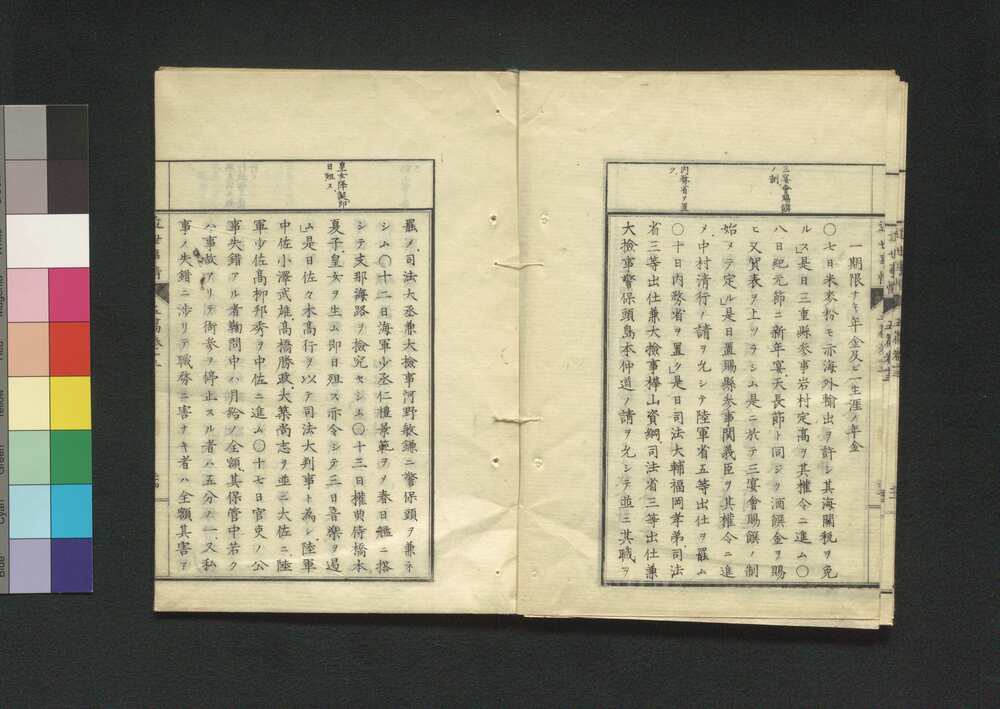 三宴會賜饌
ノ制
内務省ヲ置
ク
一期限ナキ年金及ビ一生涯ノ年金
〇七日米麥粉モ亦海外輸出ヲ許シ其海關税ヲ免
ルス」是日三重縣參事岩村定高ヲ其權令ニ進ム〇
八日紀元節ニ新年宴天長節ト同ジク酒饌金ヲ賜
ヒ又賀表ヲ上ツラシム是ニ於テ三宴會賜饌ノ制
始メテ定ル」是日置賜縣參事関義臣ヲ其權令ニ進
メ中村清行ノ請ヲ允シテ陸軍省五等出仕ヲ罷ム
〇十日内務省ヲ置ク」是日司法大輔福岡孝弟司法
省三等出仕兼大檢事樺山資綱司法省三等出仕兼
大檢事警保頭島本仲道ノ請ヲ允シテ並ニ其職ヲ
皇女降誕即
日殂ス
罷メ司法大丞兼大檢事河野敏鎌ニ警保頭ヲ兼ネ
シム〇十二日海軍少丞仁禮景範ヲノ春日艦ニ搭
シテ支那海路ヲ檢究セシム〇十三日權典侍橋本
夏子皇女ヲ生ム即日殂ス亦令シテ三日音樂ヲ遏
ム是日佐々木高行ヲ以テ司法大判事ト為シ陸軍
中佐小澤武雄高橋勝政大築尚志ヲ並ニ大佐ニ陸
軍少佐高柳邦秀ヲ中佐ニ進ム〇十七日官吏ノ公
事失錯アル者鞠問中ハ月給ノ全額其保管中若ク
ハ事故アリテ衙參ヲ停止スル者ハ五分ノ一又私
事ノ失錯ニ渉リテ職務ニ害ナキ者ハ全額其害ア